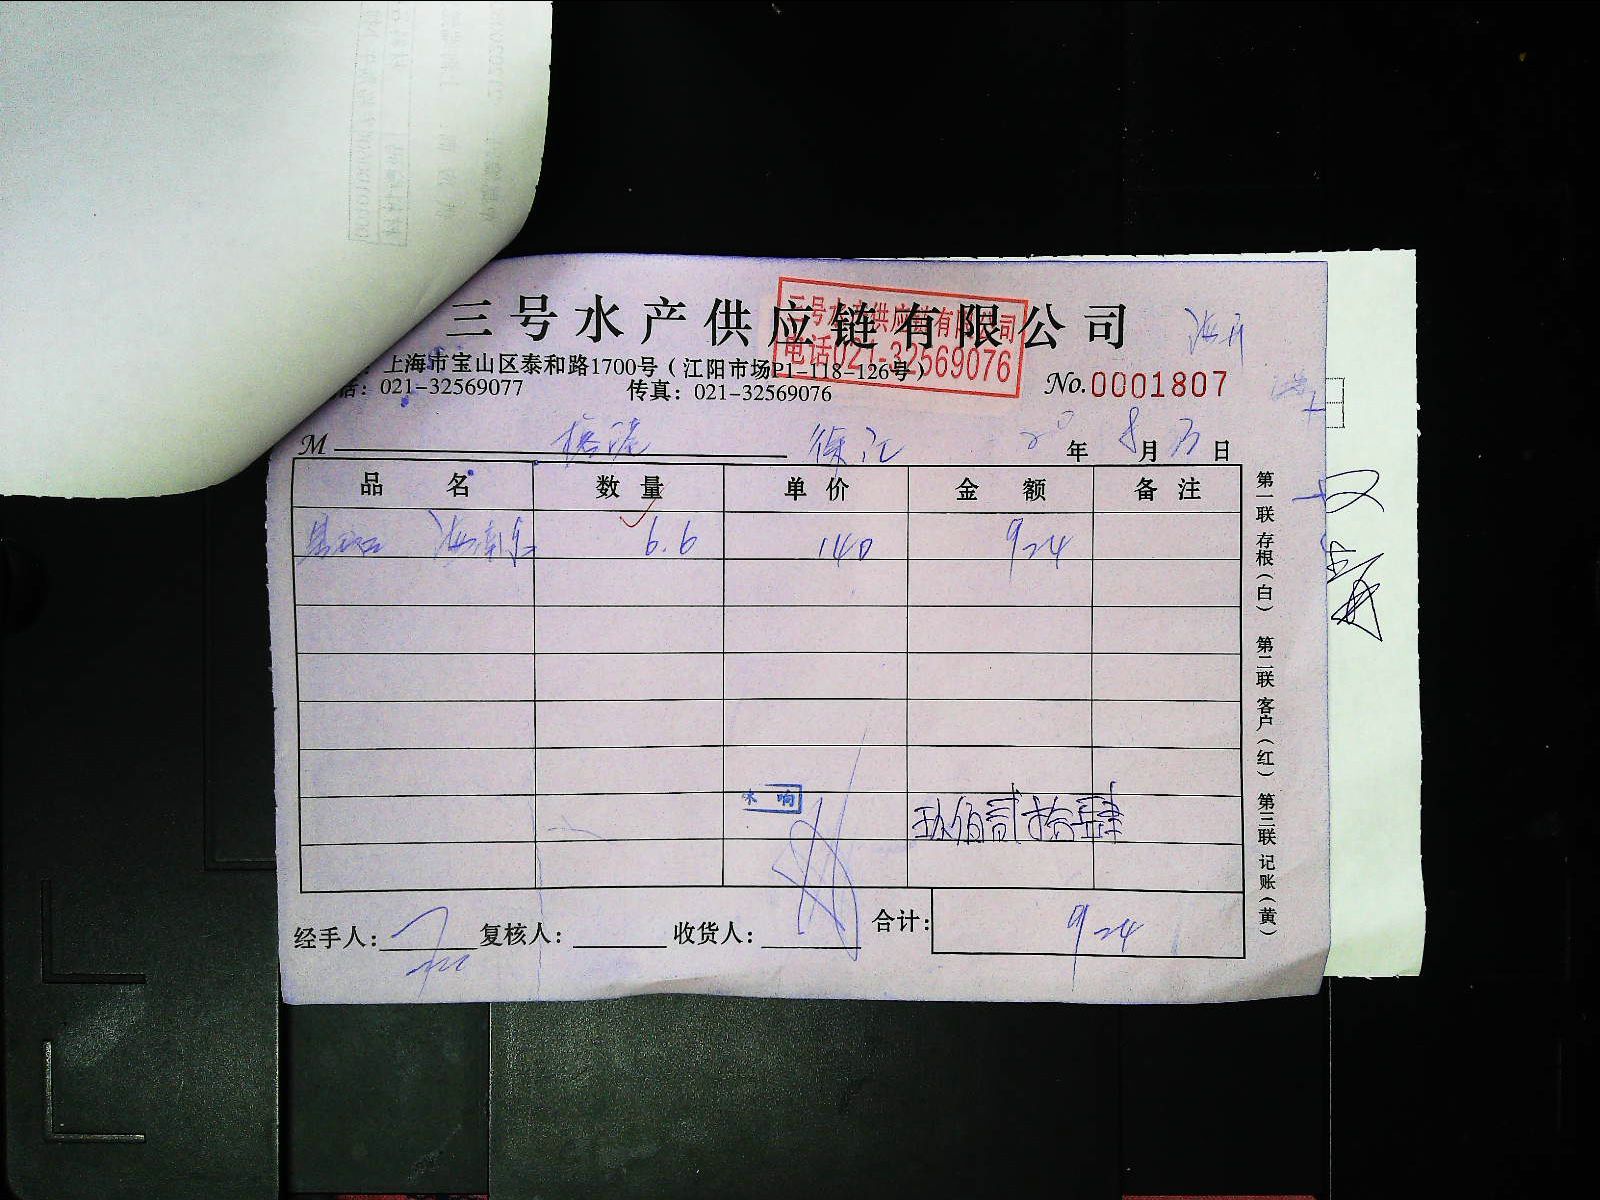 三号水产供应链有限公司
三号水产供应链有限公司
电话021-32569076
上海市宝山区泰和路1700号（江阳市场P1-118-126号）
话：021-32569077 传真：021-32569076
No.0001807
M 徐汇 20年8月 日
品 名 数 量 单 价 金 额 备 注
6.6 140 924
玖佰贰拾肆
经手人： 复核人： 收货人： 合计：924
第一联 存根（白） 第二联 客户（红） 第三联 记账（黄）